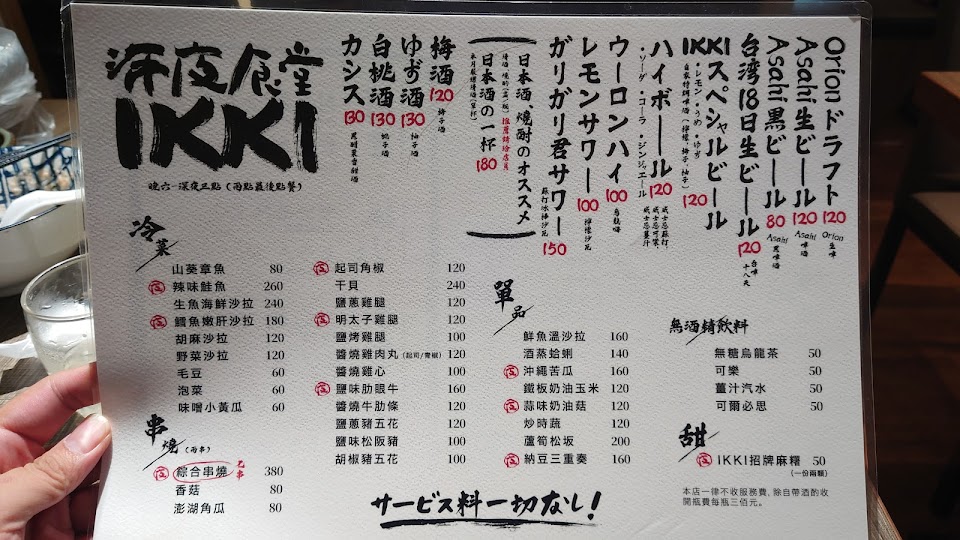 深夜食堂
IKKI
晚六－深夜三點（兩點最後點餐）
Orionドラフト 120 Orion 生啤
Asahi 生ビール 120 Asahi 啤酒
Asahi 黒ビール 80 Asahi 黑啤酒
台湾18日生ビール 120 台啤十八天
IKKIスペシャルビール 120
・レモン・うめ・ゆず
自家特調啤酒（檸檬、梅子、柚子）
ハイボール 120 威士忌蘇打、威士忌可樂、威士忌薑汁
・ソーダ・コーラ・ジンジャエール
ウーロンハイ 100 烏龍嗨
レモンサワー 100 檸檬沙瓦
ガリガリ君サワー 150 蘇打冰棒沙瓦
日本酒、焼酎のオススメ
推薦請洽店員
日本酒の一杯 180
梅酒 120 梅子酒
ゆず酒 130 柚子酒
白桃酒 130 桃子酒
カシス 130 黑醋栗香甜酒
冷菜
山葵章魚 80
辣味鮭魚 260
生魚海鮮沙拉 240
鱈魚嫩肝沙拉 180
胡麻沙拉 120
野菜沙拉 120
毛豆 60
泡菜 60
味噌小黃瓜 60
串燒（兩串）
綜合串燒 380 九串
香菇 80
澎湖角瓜 80
起司角椒 120
干貝 240
鹽蔥雞腿 120
明太子雞腿 120
鹽烤雞腿 100
醬燒雞肉丸（起司/青椒） 120
醬燒雞心 100
鹽味肋眼牛 160
醬燒牛肋條 120
鹽蔥豬五花 120
鹽味松阪豬 100
胡椒豬五花 100
單品
鮮魚溫沙拉 160
酒蒸蛤蜊 140
沖繩苦瓜 160
鐵板奶油玉米 120
蒜味奶油菇 120
炒時蔬 120
蘆筍松坂 200
納豆三重奏 160
無酒精飲料
無糖烏龍茶 50
可樂 50
薑汁汽水 50
可爾必思 50
甜
IKKI招牌麻糬 50
（一份兩顆）
本店一律不收服務費，除自帶酒酌收
開瓶費每瓶三佰元。
サービス料一切なし！